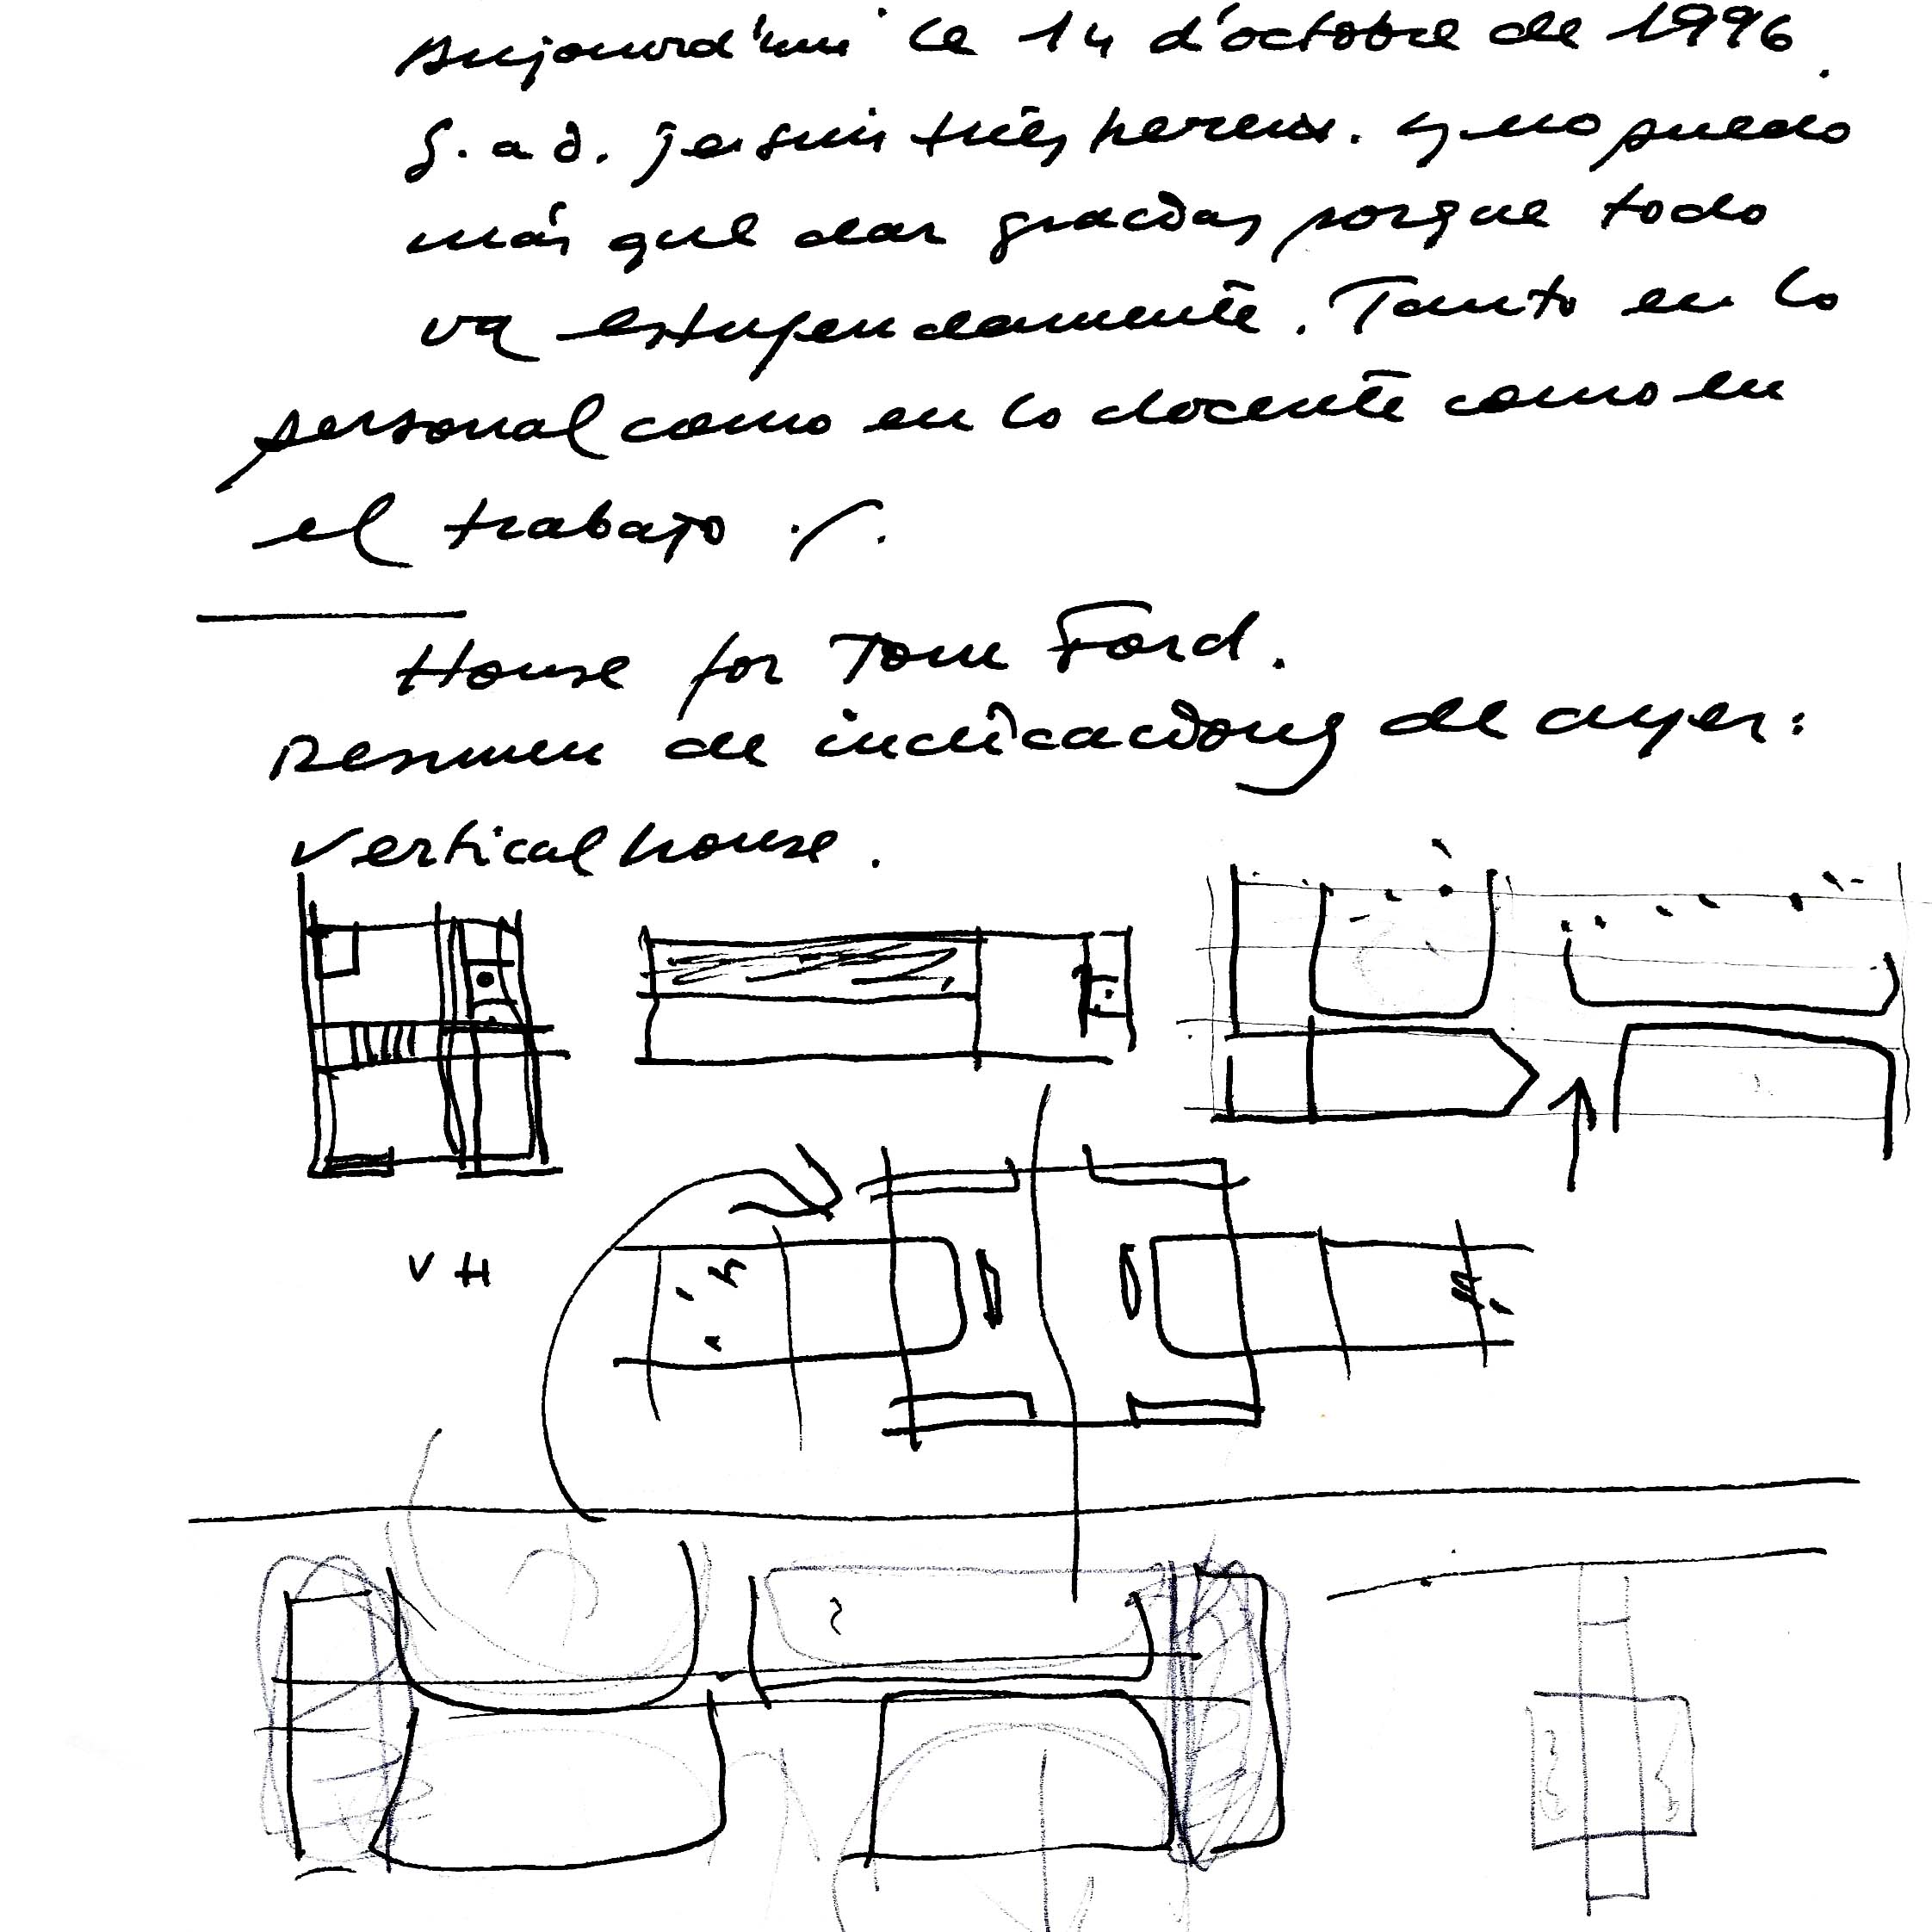 Aujourd'hui le 14 d'octobre de 1996.
G. a D. je suis très hereux. y no puedo
más que dar gracias porque todo
va estupendamente. Tanto en lo
personal como en lo docente como en
el trabajo ./.
House for Tom Ford.
Resumen de indicaciones de ayer:
Vertical house.
VH